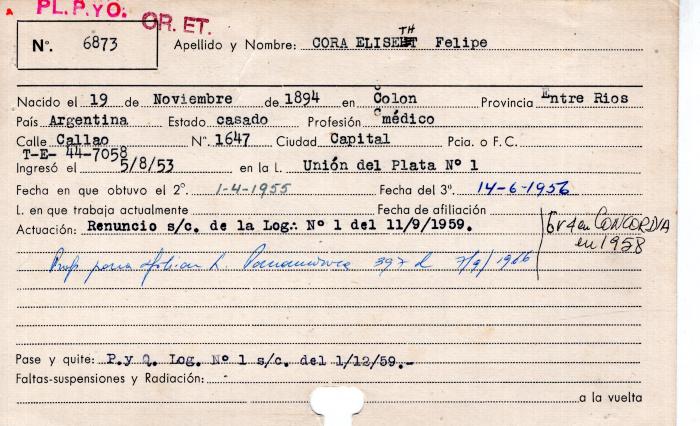 PL. P. y O.
OR. ET.
N°. 6873
Apellido y Nombre: CORA ELISEHT TH Felipe
Nacido el 19 de Noviembre de 1894 en Colon Provincia Entre Rios
País Argentina Estado casado Profesión médico
Calle Callao N° 1647 Ciudad Capital Pcia. o F. C.
T-E- 44-7058
Ingresó el 5/8/53 en la L. Unión del Plata N° 1
Fecha en que obtuvo el 2°. 1-4-1955 Fecha del 3°. 14-6-1956
L. en que trabaja actualmente Fecha de afiliación
Actuación: Renuncio s/c. de la Log∴ N° 1 del 11/9/1959.
Gr 4 en CONCORDIA
en 1958
para L. 397 7/9/1966
Pase y quite: P.y Q. Log. N° 1 s/c. del 1/12/59.-
Faltas-suspensiones y Radiación:
a la vuelta